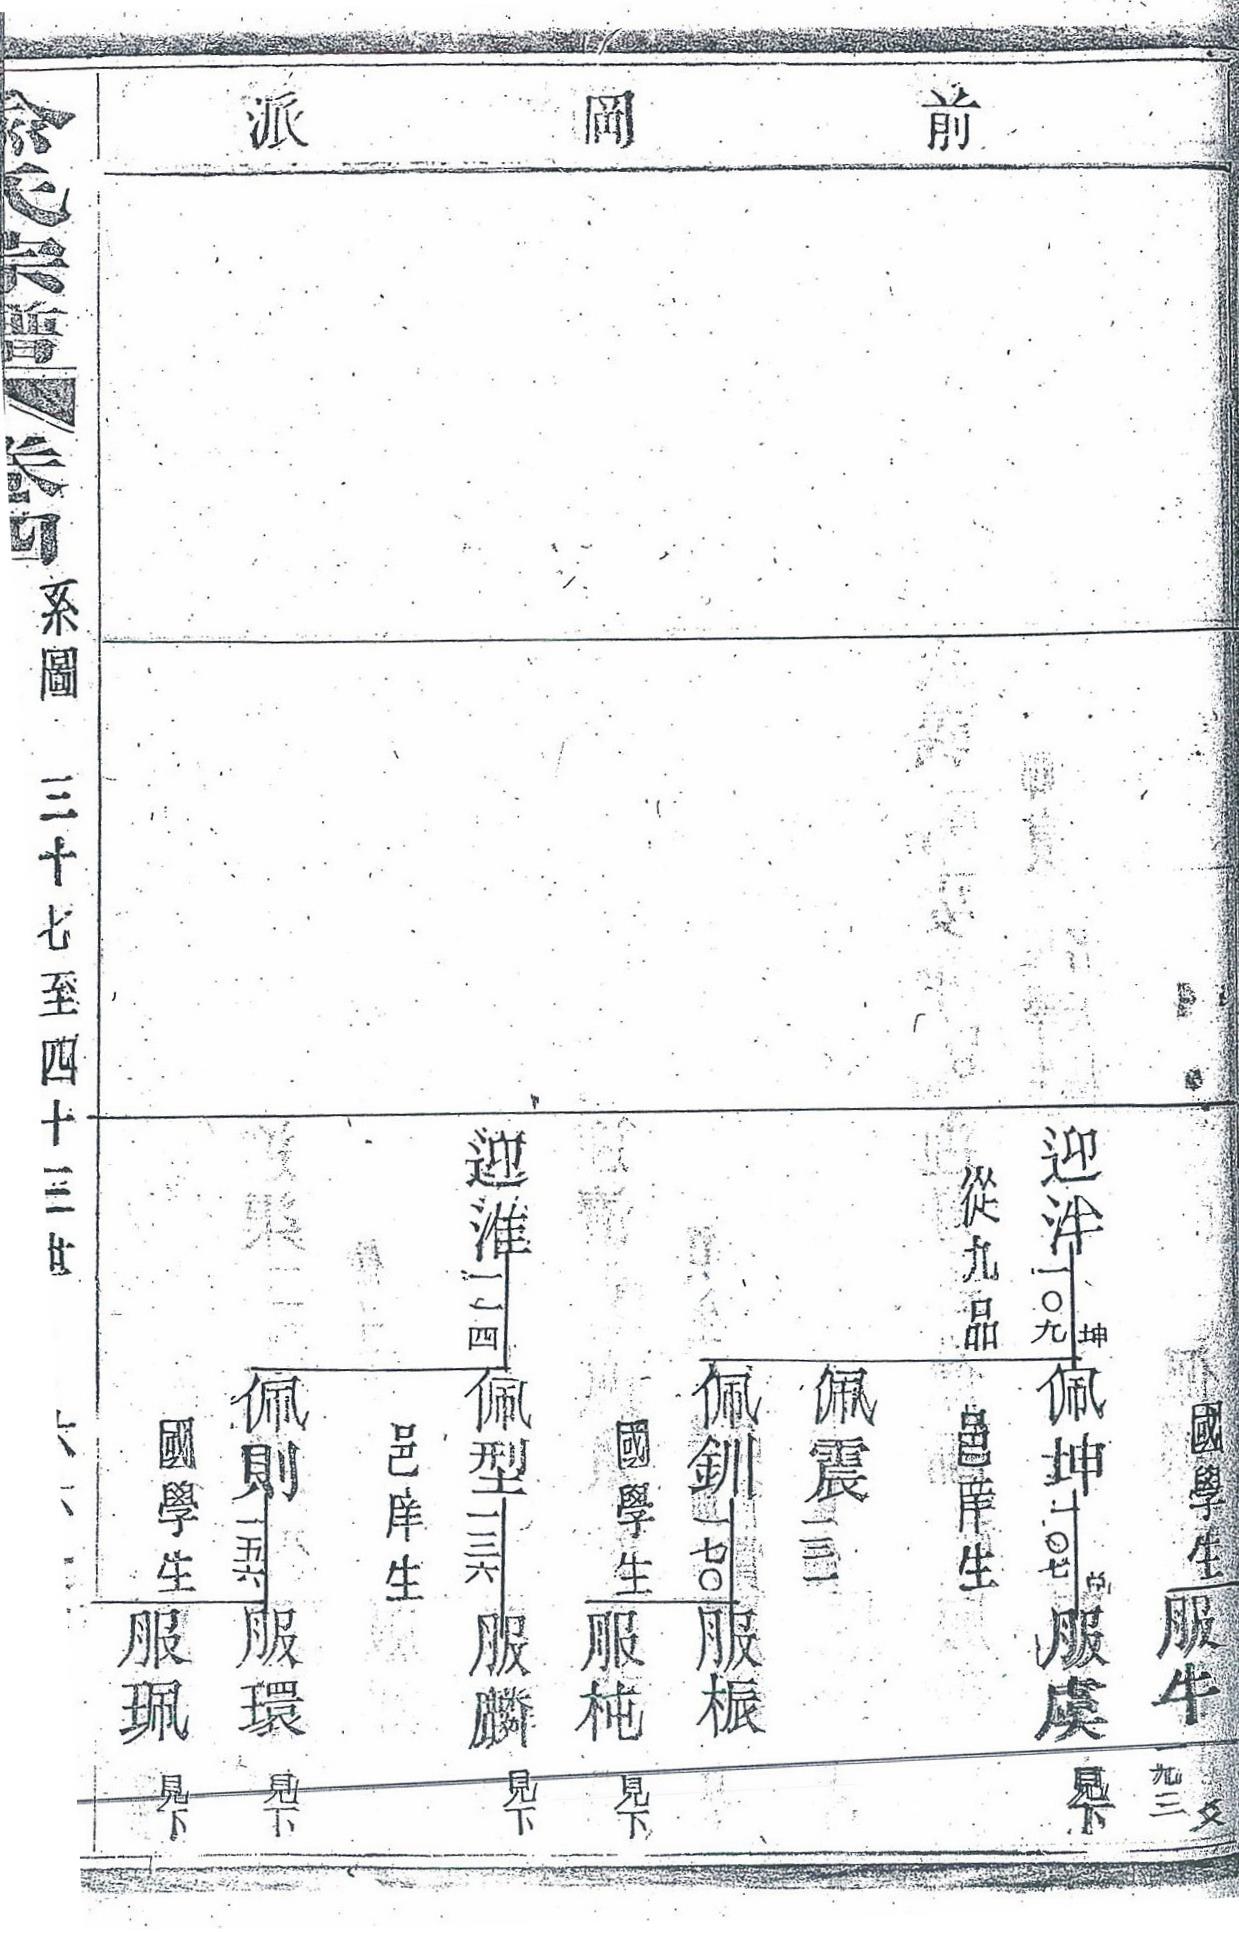 前岡派
國學生
服牛
一九三
迎泮
一〇九
坤
從九品
佩坤
一〇七
邑庠生
服虞
見下
佩震
一三一
佩釧
一七〇
國學生
服桭
服杶
見下
迎淮
一一四
佩型
一三六
邑庠生
服麟
見下
佩則
一五六
國學生
服環
見下
服珮
見下
俞氏宗譜
卷四
系圖
三十七至四十三世